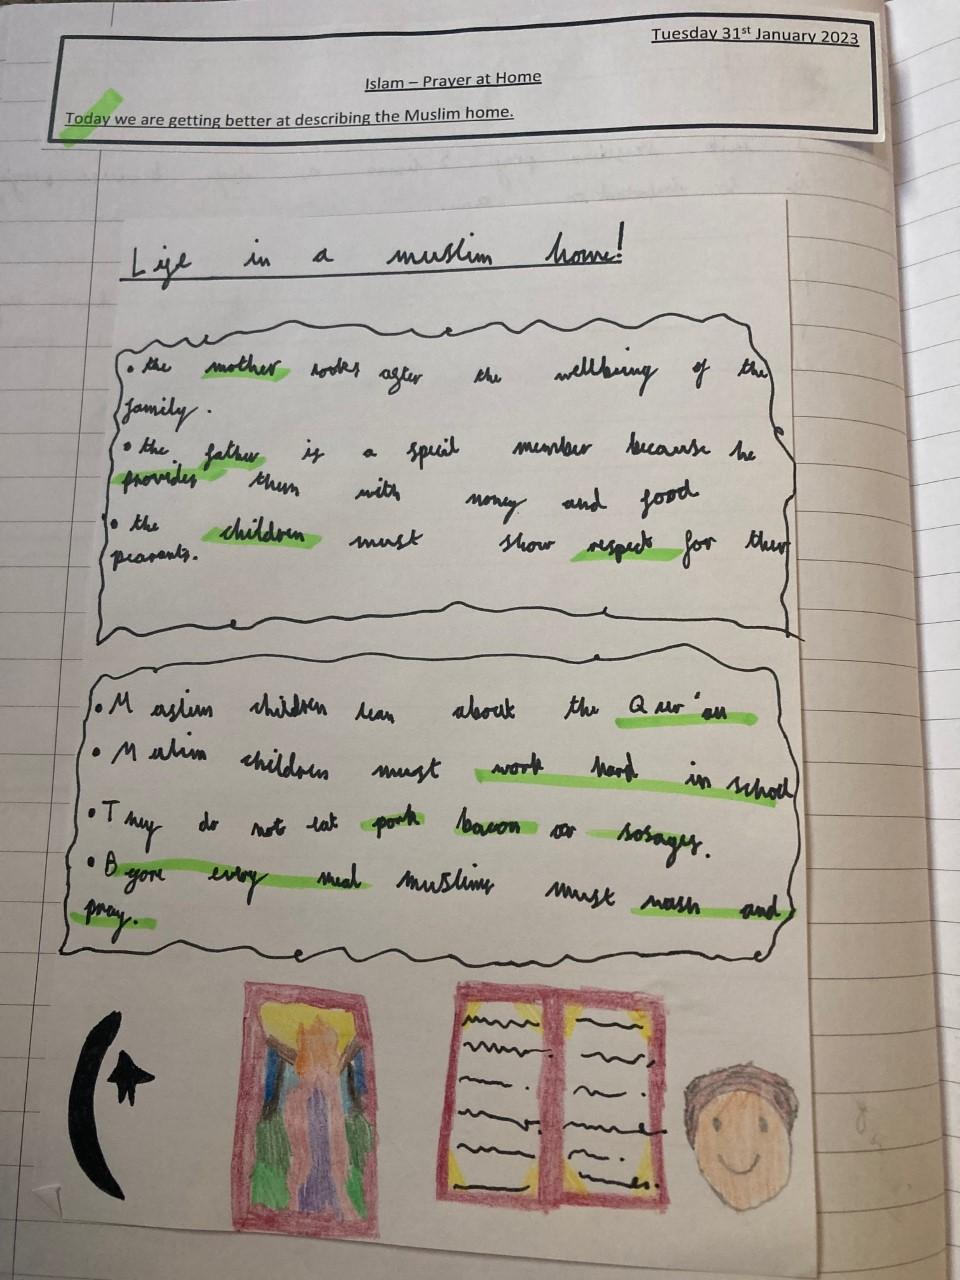 Tuesday 31st January 2023
Islam – Prayer at Home
Today we are getting better at describing the Muslim home.
Life in a muslim home!
• the mother looks after the wellbeing of the
family.
• the father is a special member because he
provides them with money and food
• the children must show respect for their
pearants.
• Muslim children lean about the Qur'an
• Muslim children must work hard in school
• They do not eat pork bacon or sosages.
• Before every meal muslims must wash and
pray.